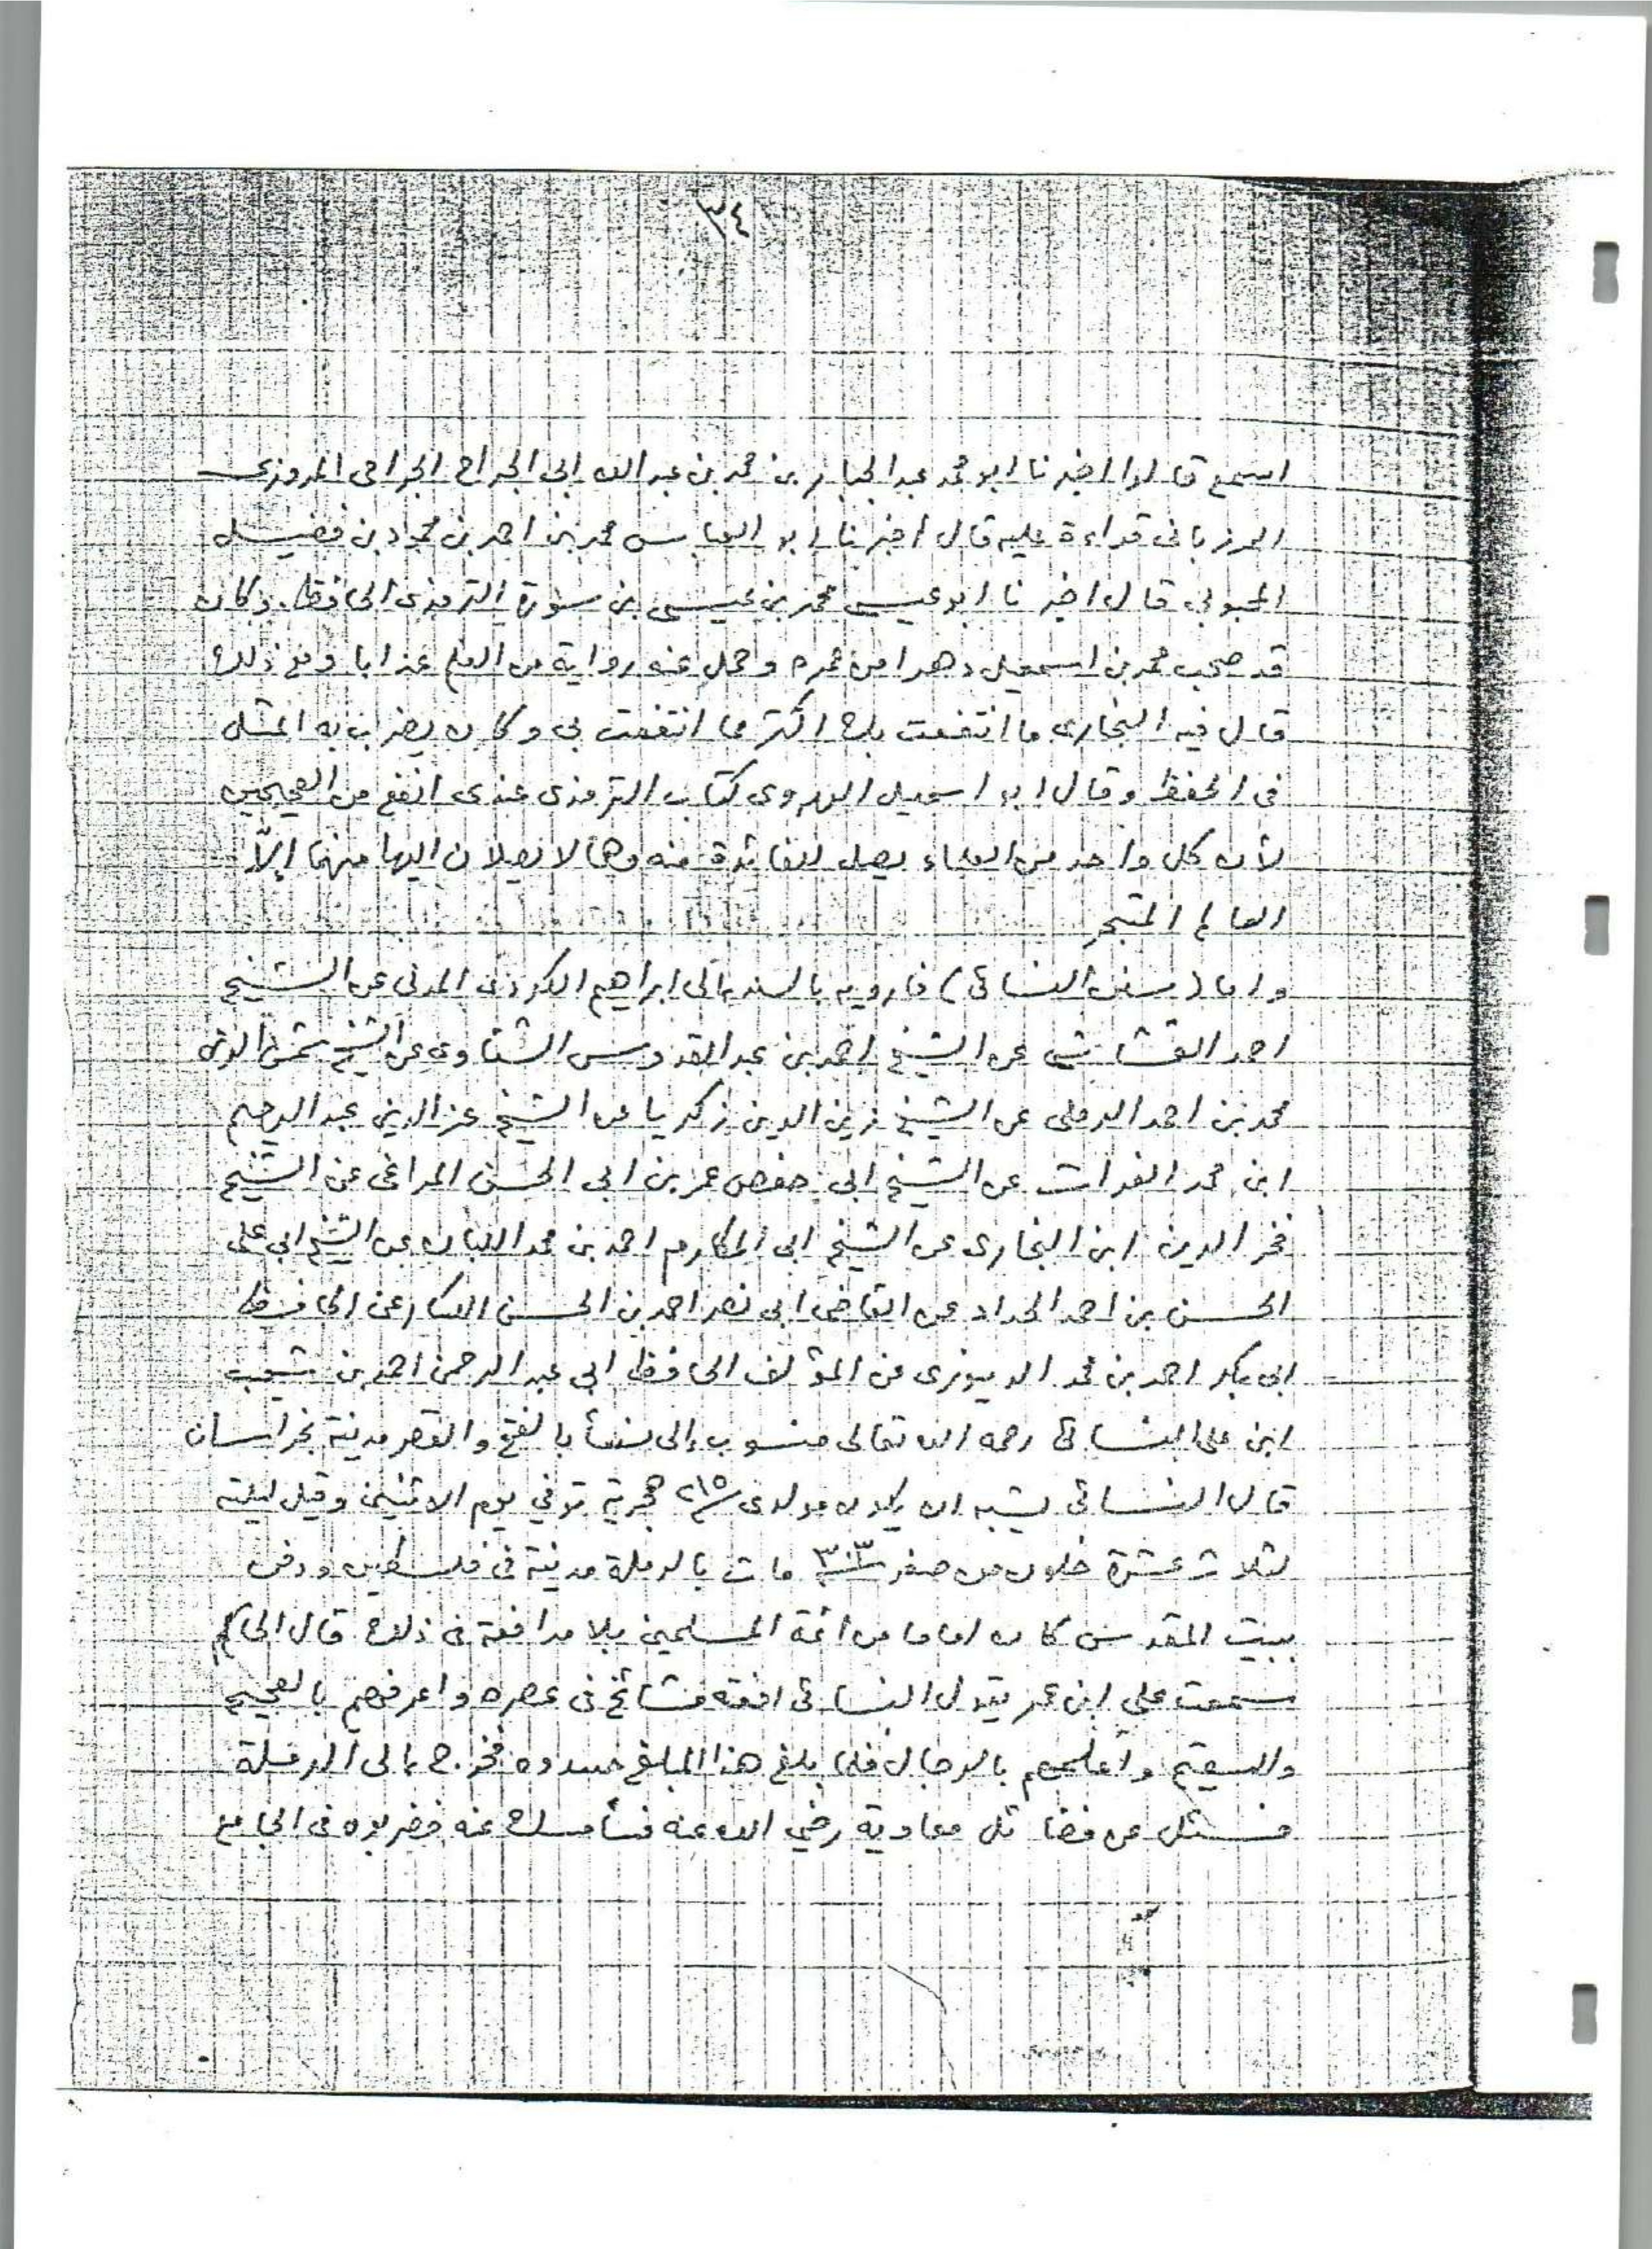 ٣٤
اسمع قالوا اخبرنا ابو محمد عبد الجبار بن محمد بن عبد الله ابى الجراح الجراحى المروزى
المرزبانى قراءة عليه قال اخبرنا ابو العباس محمد بن احمد بن محبوب بن فضيل
المحبوبى قال اخبرنا ابو عيسى محمد بن عيسى بن سورة الترمذى الحافظ وكان
قد صحب محمد بن اسمعيل دهرا من عمره وحمل عنه رواية من العلم عذابا ومع ذلك
قال فيه البخارى ما انتفعت بك اكثر مما انتفعت بى وكان يضرب به المثل
فى الحفظ وقال ابو اسمعيل الهروى كتاب الترمذى عندى انفع من الصحيحين
لأن كل واحد من العلماء يصل للفائدة منه وهما لا يصلان اليها منهما إلاّ
العالم المتبحر
واما (سنن النسائى) فارويه بالسند الى ابراهيم الكردى المدنى عن الشيخ
احمد القشاشى عن الشيخ احمد بن عبد القدوس الشناوى عن الشيخ شمس الدين
محمد بن احمد الرملى عن الشيخ زين الدين زكريا عن الشيخ عز الدين عبد الرحيم
ابن محمد الفرات عن الشيخ ابى حفص عمر بن ابى الحسن المراغى عن الشيخ
فخر الدين ابن البخارى عن الشيخ ابى المكارم احمد بن محمد اللبان عن الشيخ ابى على
الحسن بن احمد الحداد عن القاضى ابى نصر احمد بن الحسن الكسار عن الحافظ
ابى بكر احمد بن محمد الدينورى عن المؤلف الحافظ ابى عبد الرحمن احمد بن شعيب
ابن على النسائى رحمه الله تعالى منسوب إلى نسأ بالفتح والقصر مدينة بخراسان
قال النسائى يشبه ان يكون مولدى ٢١٥ هجرية توفي يوم الاثنين وقيل ليلته
لثلاث عشرة خلون من صفر ٣٠٣ مات بالرملة مدينة فى فلسطين ودفن
ببيت المقدس كان اماما من أئمة المسلمين بلا مدافعة فى ذلك قال الحاكم
سمعت على ابن عمر يقول النسائى افقه مشائخ فى عصره واعرفهم بالصحيح
والسقيم واعلمهم بالرجال فلما بلغ هذا المبلغ حسدوه فخرج إلى الرملة
فسئل عن فضائل معاوية رضي الله عنه فأمسك عنه فضربوه فى الجامع